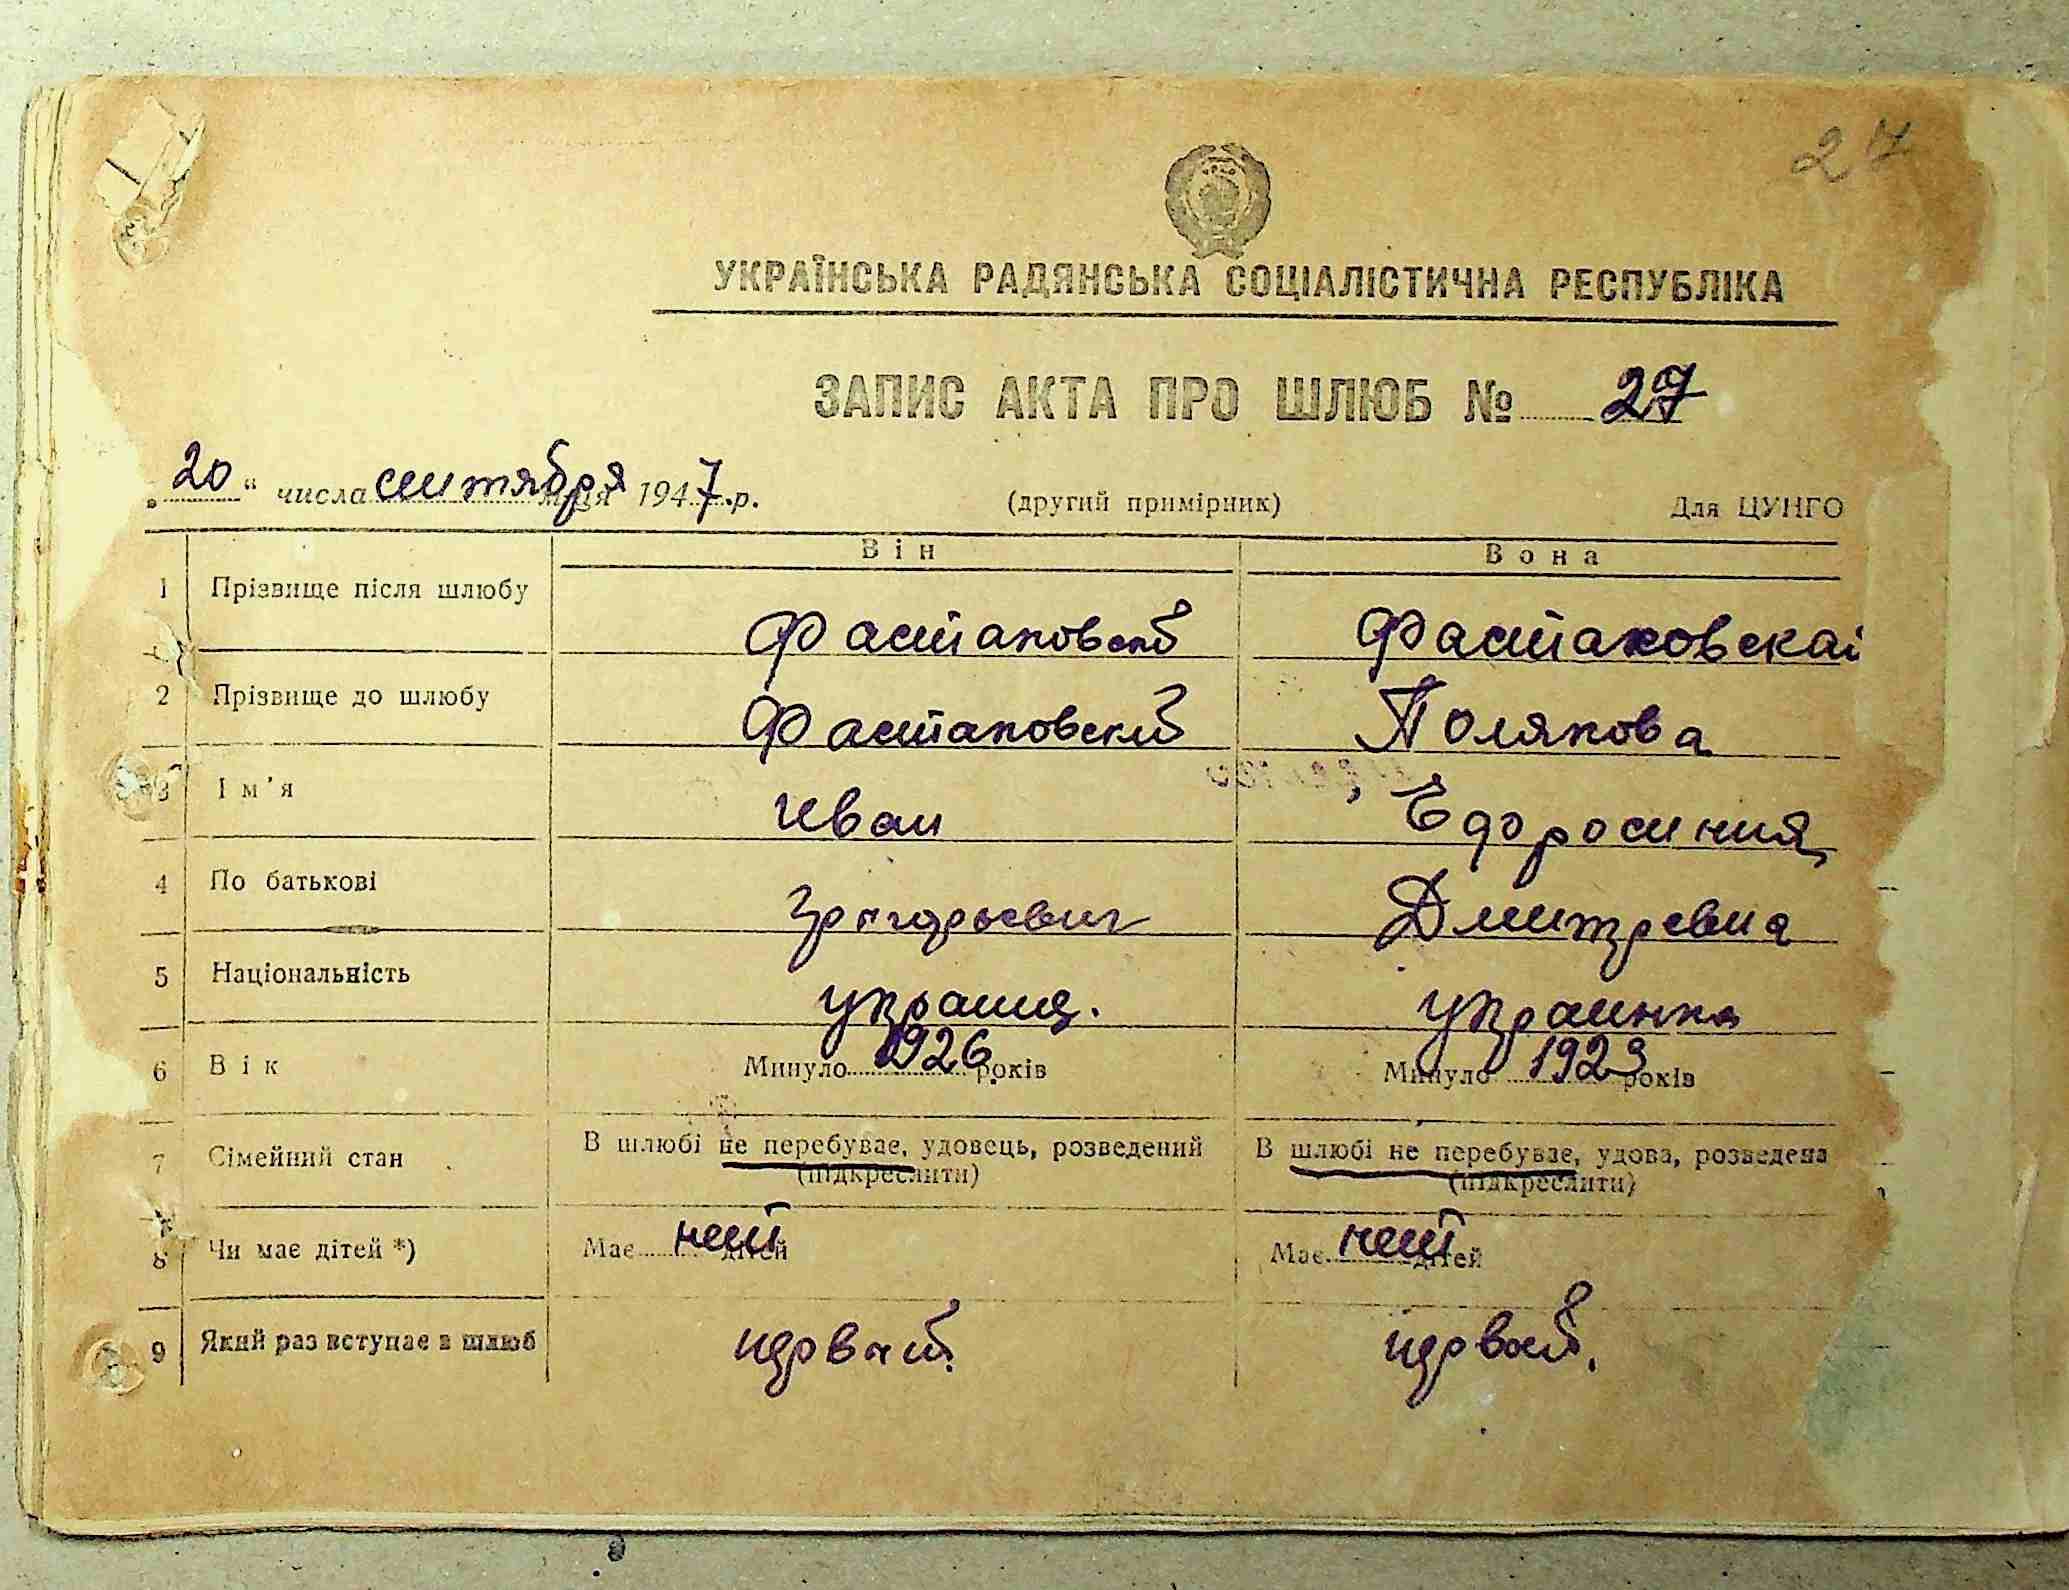 27
УКРАЇНСЬКА РАДЯНСЬКА СОЦІАЛІСТИЧНА РЕСПУБЛІКА
ЗАПИС АКТА ПРО ШЛЮБ № 27
„20“ числа сентября м-ця 1947 р. (другий примірник) Для ЦУНГО
Він Вона
1 Прізвище після шлюбу Фастаковский Фастаковская
2 Прізвище до шлюбу Фастаковский Полякова
3 Ім'я Иван Ефросиния
4 По батькові Григорьевич Дмитревна
5 Національність украинц. украинка
6 Вік Минуло 1926 років Минуло 1923 років
7 Сімейний стан В шлюбі не перебуває, удовець, розведений В шлюбі не перебуває, удова, розведена
(підкреслити) (підкреслити)
8 Чи має дітей *) Має нет дітей Має нет дітей
9 Який раз вступає в шлюб первый. первый.